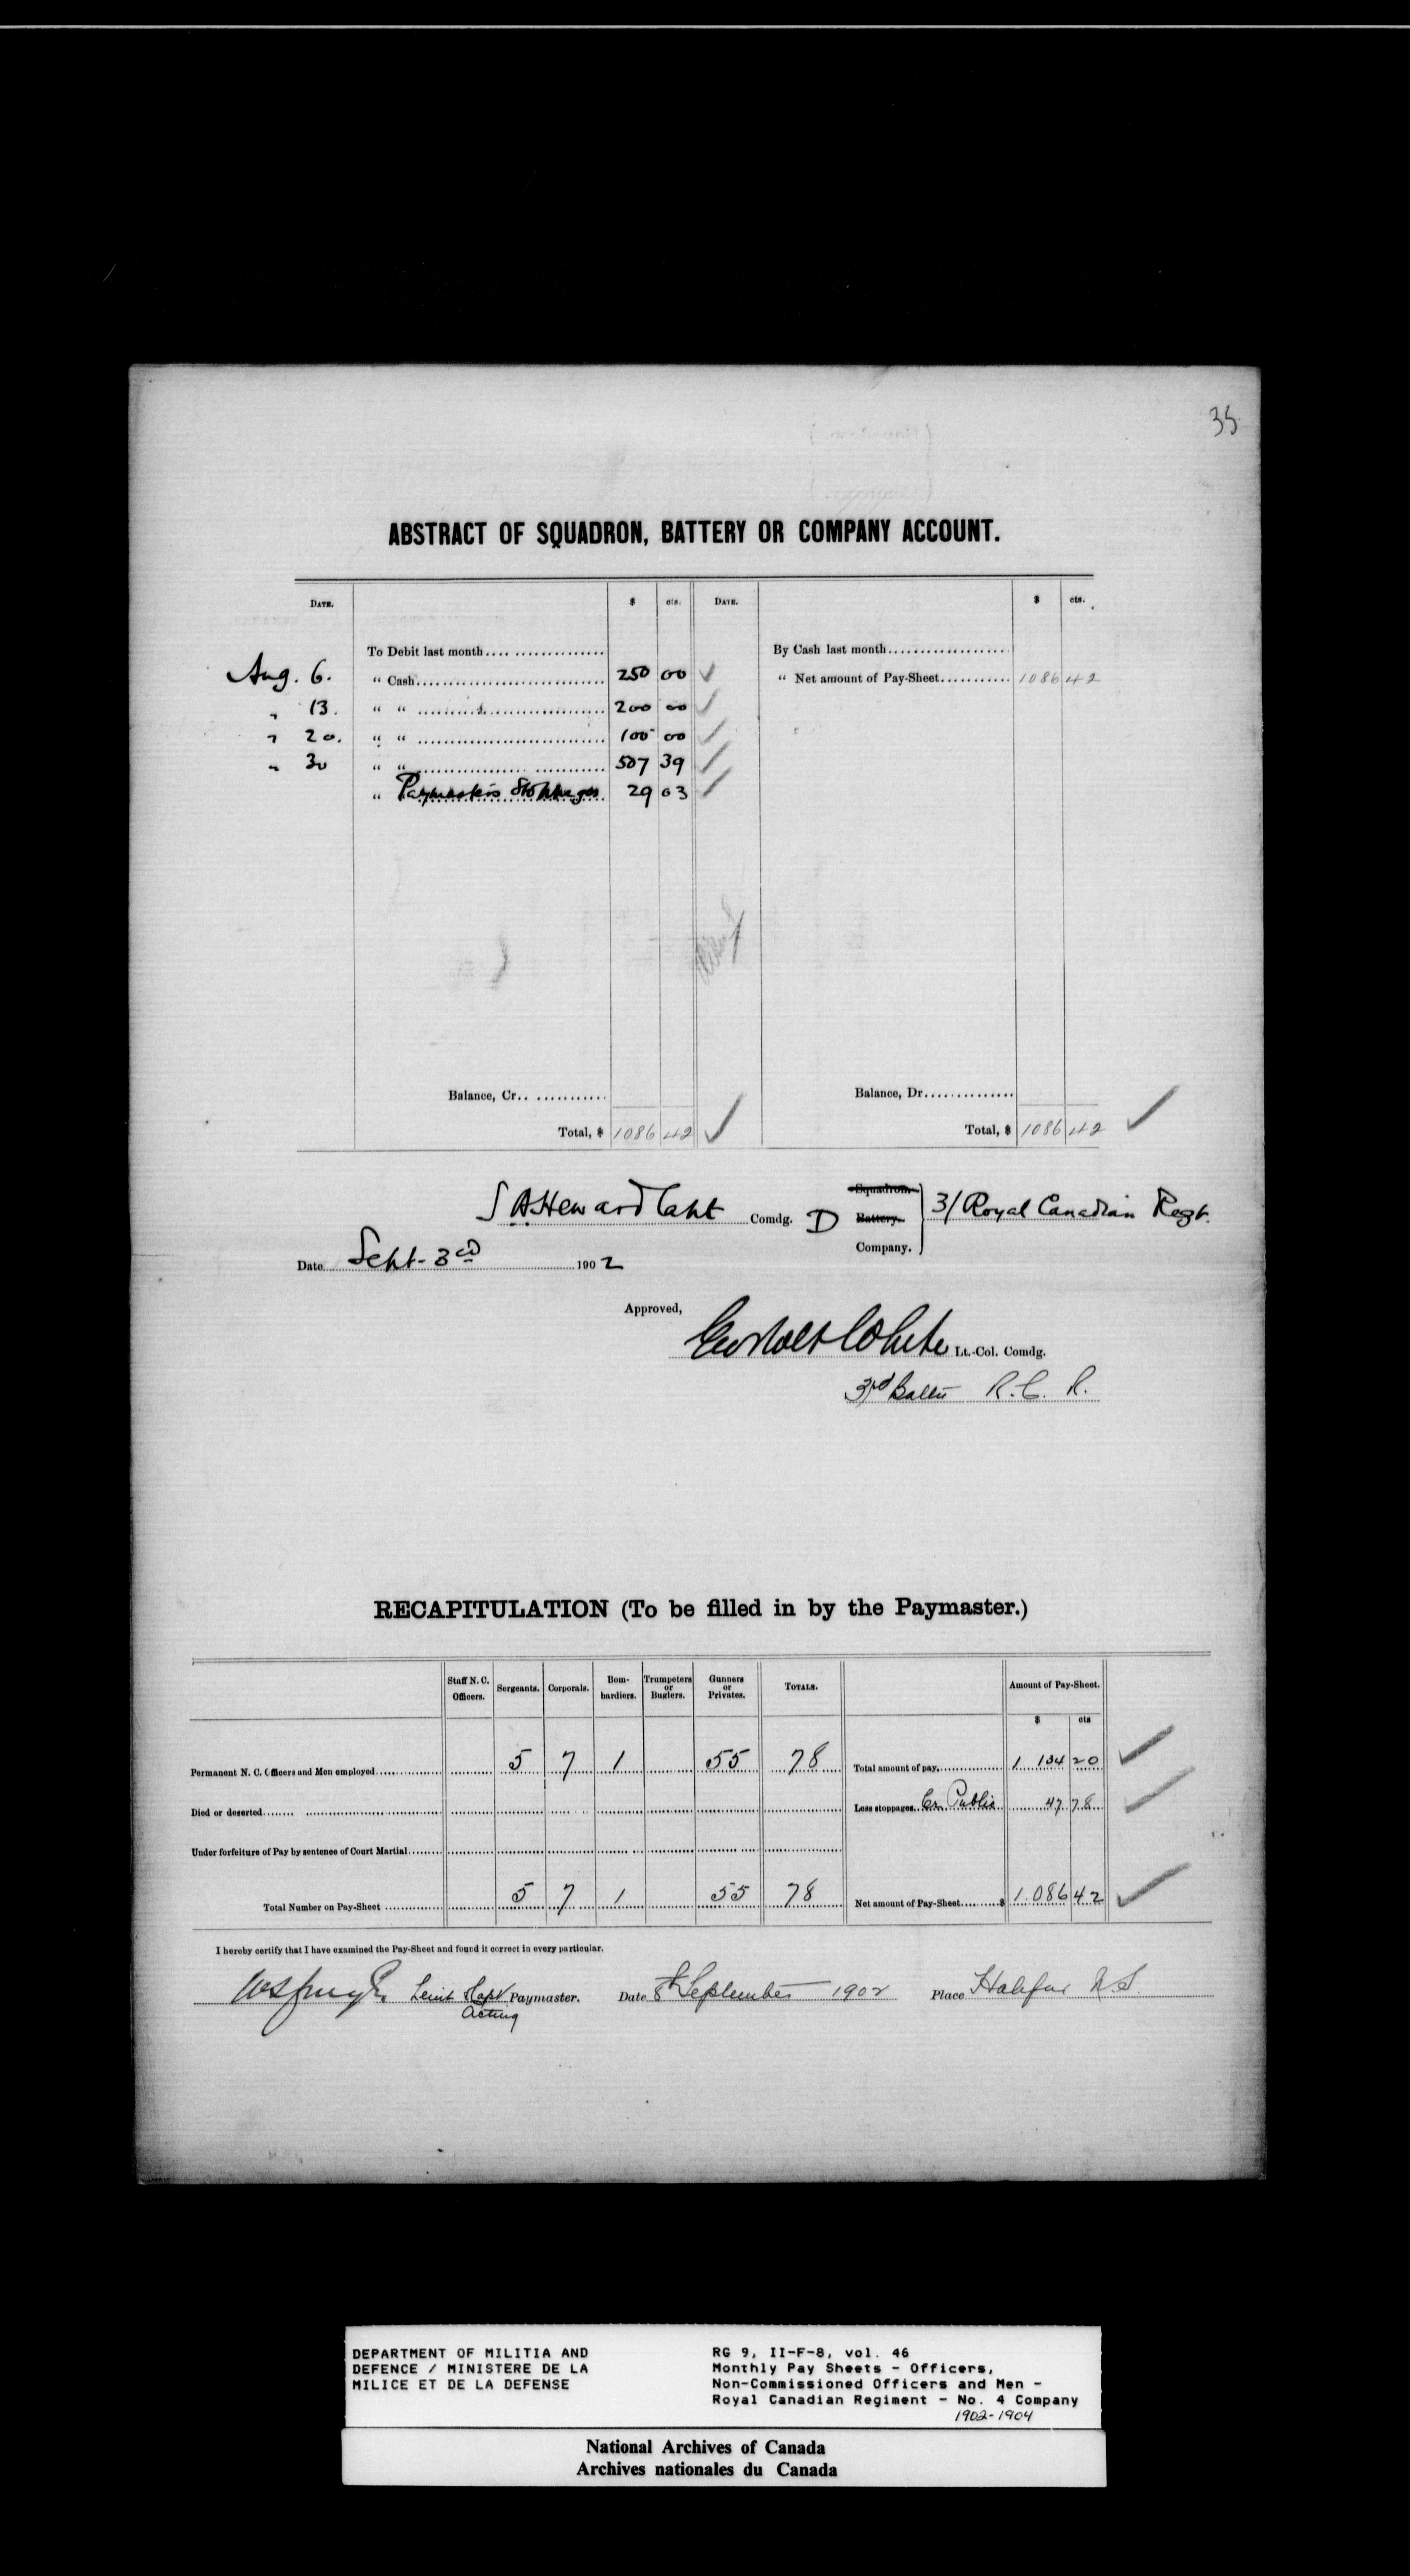 35
ABSTRACT OF SQUADRON, BATTERY OR COMPANY ACCOUNT.
DATE. $ cts. DATE. $ cts.
To Debit last month By Cash last month
Aug. 6. " Cash 250 00 " Net amount of Pay-Sheet 1086 42
" 13. " " 200 00
" 20. " " 100 00
" 30 " " 507 39
" Paymaster's Stoppages 29 03
Balance, Cr. Balance, Dr.
Total, $ 1086 42 Total, $ 1086 42
S A Heward Capt Comdg. D Squadron. Battery. Company. } 3/ Royal Canadian Regt.
Date Sept. 3rd 1902
Approved,
White Lt.-Col. Comdg.
3rd Battn R. C. R.
RECAPITULATION (To be filled in by the Paymaster.)
Staff N. C. Officers. Sergeants. Corporals. Bombardiers. Trumpeters or Buglers. Gunners or Privates. TOTALS. Amount of Pay-Sheet.
$ cts
Permanent N. C. Officers and Men employed 5 7 1 55 78 Total amount of pay, 1 134 20
Died or deserted Less stoppages. Cr. Public 47 78
Under forfeiture of Pay by sentence of Court Martial
Total Number on Pay-Sheet 5 7 1 55 78 Net amount of Pay-Sheet $ 1.086 42
I hereby certify that I have examined the Pay-Sheet and found it correct in every particular.
Lieut & Capt Paymaster. Date 8th September 1902 Place Halifax N.S.
Acting
DEPARTMENT OF MILITIA AND
DEFENCE / MINISTERE DE LA
MILICE ET DE LA DEFENSE
RG 9, II-F-8, vol. 46
Monthly Pay Sheets - Officers,
Non-Commissioned Officers and Men -
Royal Canadian Regiment - No. 4 Company
1902-1904
National Archives of Canada
Archives nationales du Canada